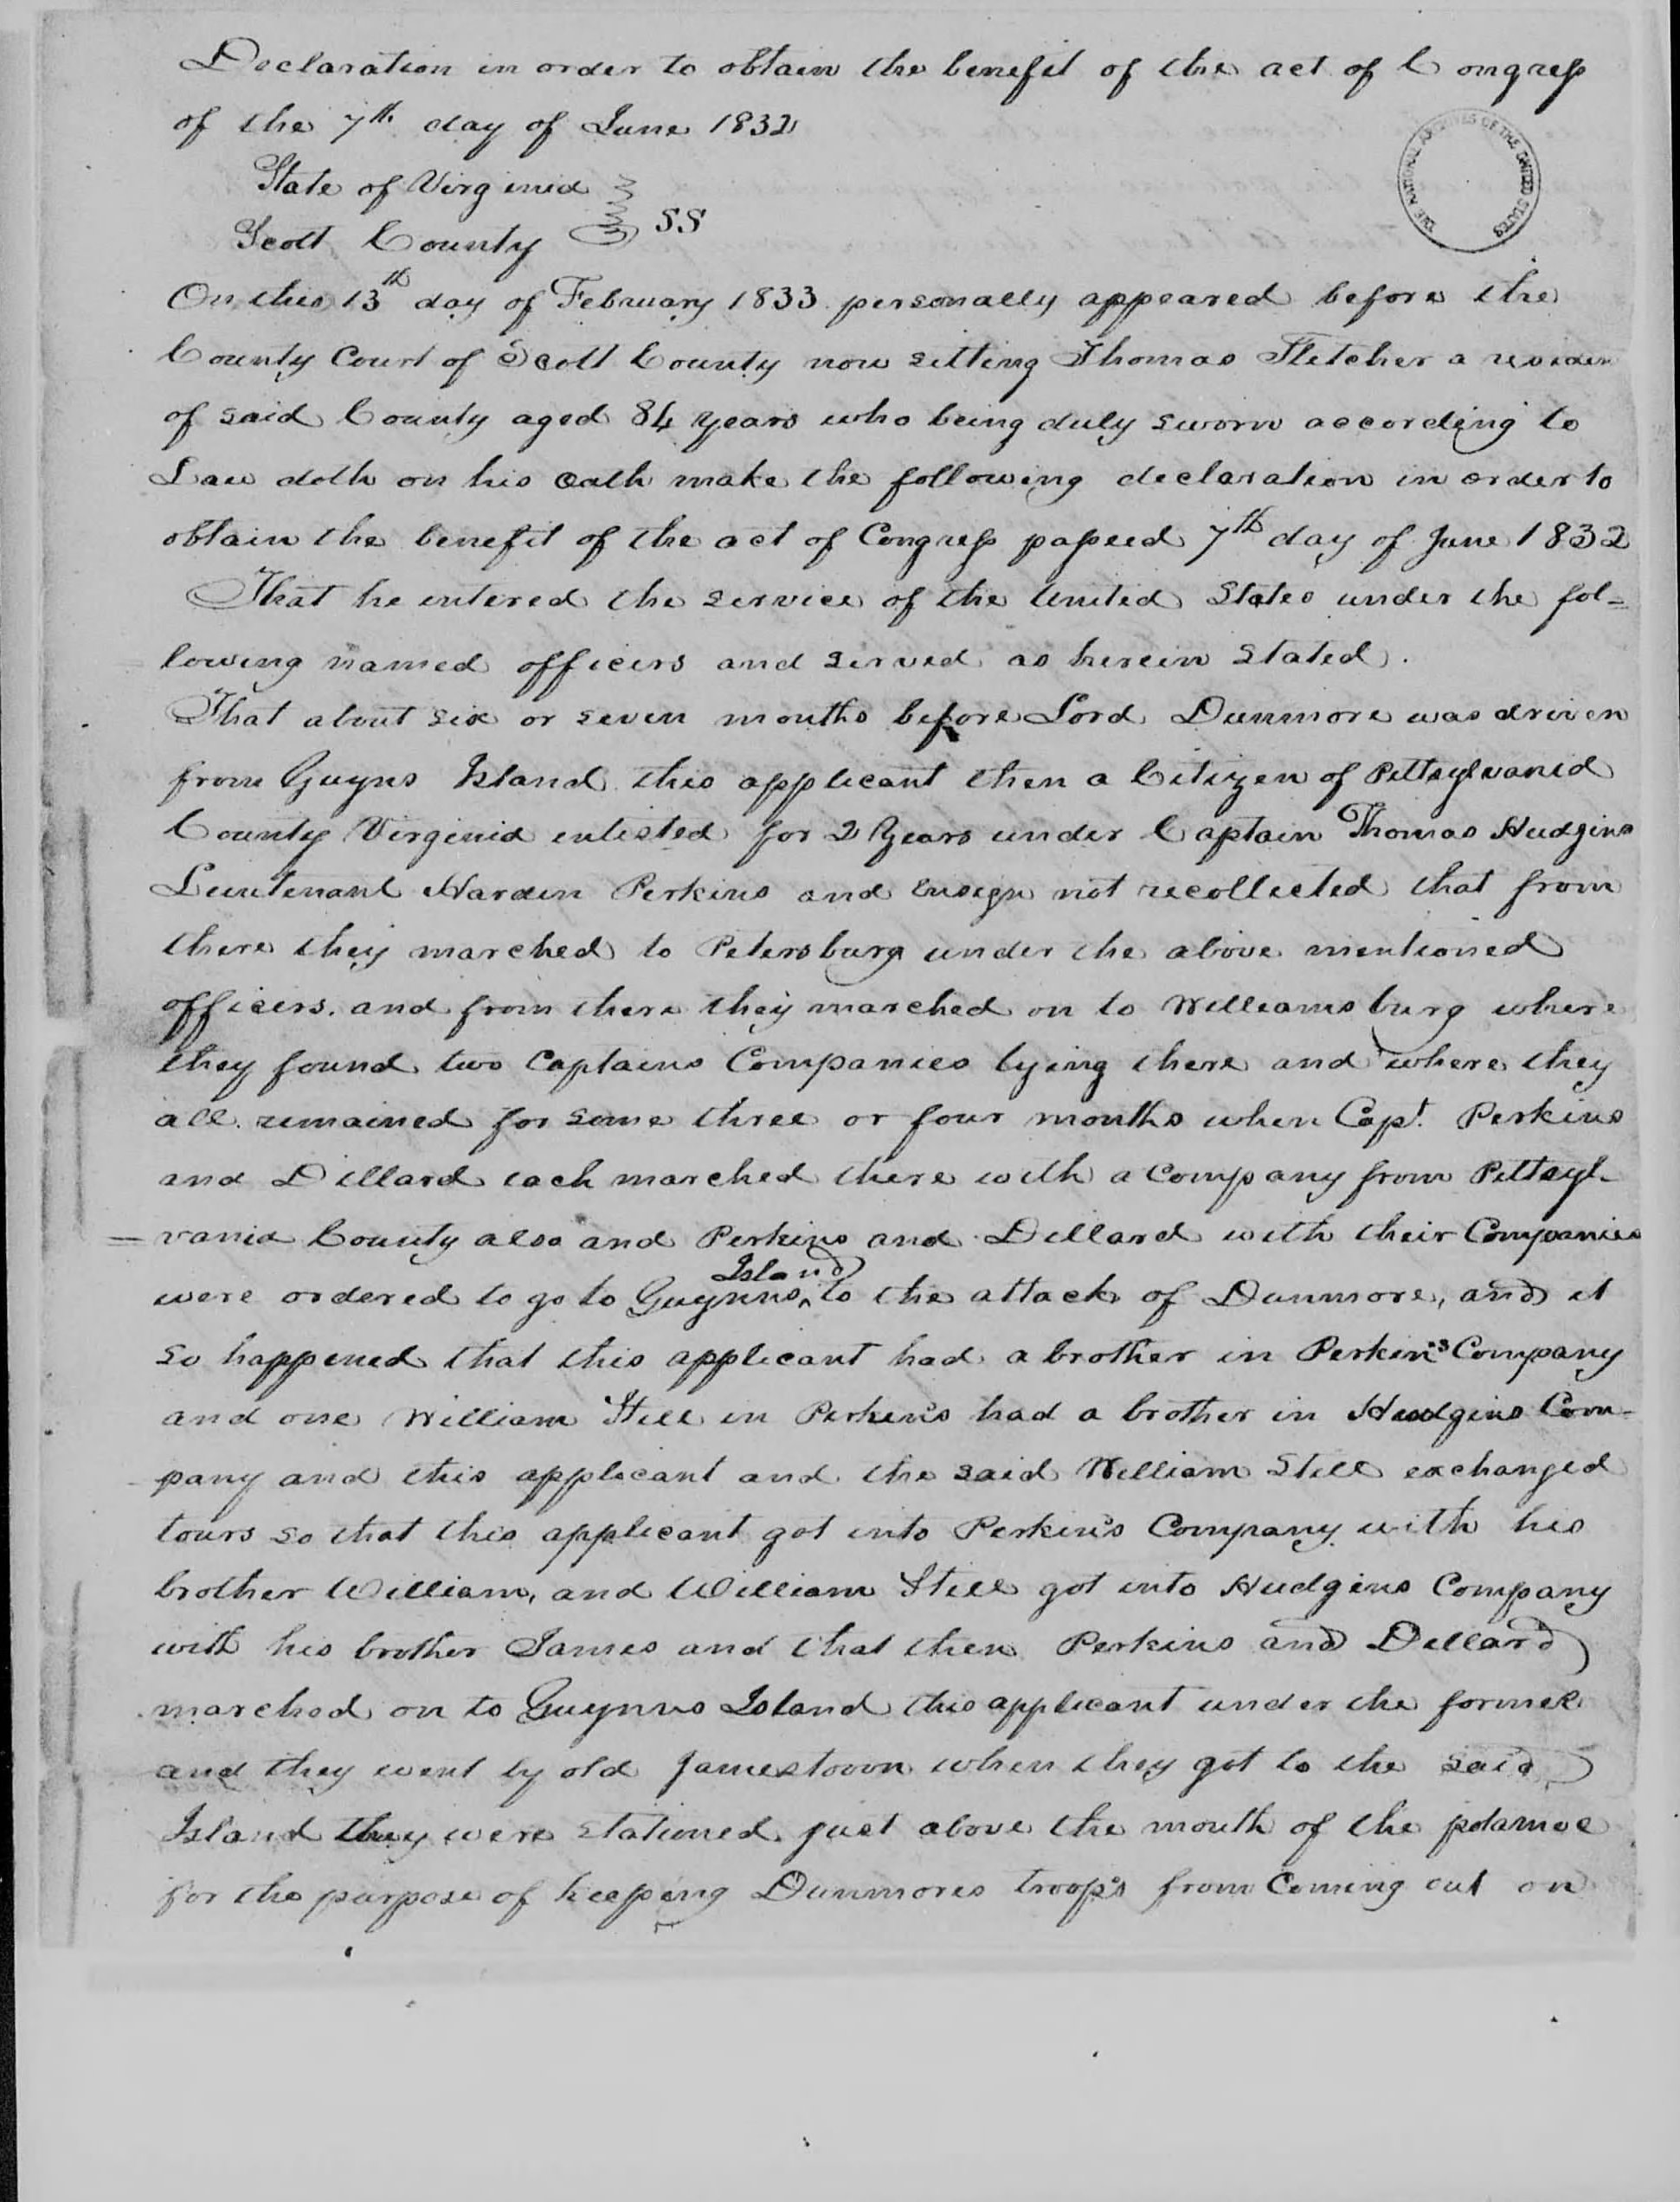 Declaration in order to obtain the benefit of the act of Congress
of the 7th day of June 1832
State of Virginia
Scott County SS
THE NATIONAL ARCHIVES OF THE UNITED STATES
On this 13th day of February 1833 personally appeared before the
County Court of Scott County now sitting Thomas Fletcher a residen
of said County aged 84 years who being duly sworn according to
Law doth on his oath make the following declaration in order to
obtain the benefit of the act of Congress passed 7th day of June 1832
That he entered the service of the United States under the fol=
lowing named officers and served as herein stated.
That about six or seven months before Lord Dunmore was driven
from Guyns Island this applicant then a Citizen of Pittsylvania
County Virginia enlisted for 2 Years under Captain Thomas Hudgins
Lieutenant Harden Perkins and Ensign not recollected that from
there they marched to Petersburg under the above mentioned
officers. and from there they marched on to Williamsburg where
they found two Captains Companies lying there and where they
all remained for some three or four months when Capt. Perkins
and Dillard each marched there with a Company from Pittsyl-
=vania County also and Perkins and Dillard with their Companies
were ordered to go to Guynns Island to the attack of Dunmore, and it
so happened that this applicant had a brother in Perkin's Company
and one William Still in Perkin's had a brother in Hudgins Com-
pany and this applicant and the said William Still exchanged
tours so that this applicant got into Perkin's Company with his
brother William, and William Still got into Hudgins Company
with his brother James and that then Perkins and Dillard
marched on to Guynns Island this applicant under the former
and they went by old Jamestown when they got to the said
Island they were stationed just above the mouth of the potamoc
for the purpose of keeping Dunmores troop's from Coming out on